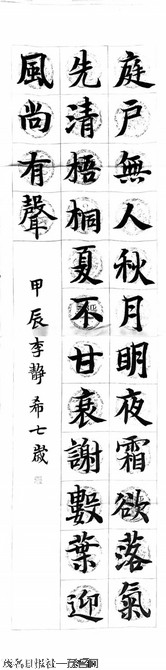 庭戶無人秋月明夜霜欲落氣
先清梧桐夏不甘衰謝數葉迎
風尚有聲
甲辰李靜希七歲
茂名日报社